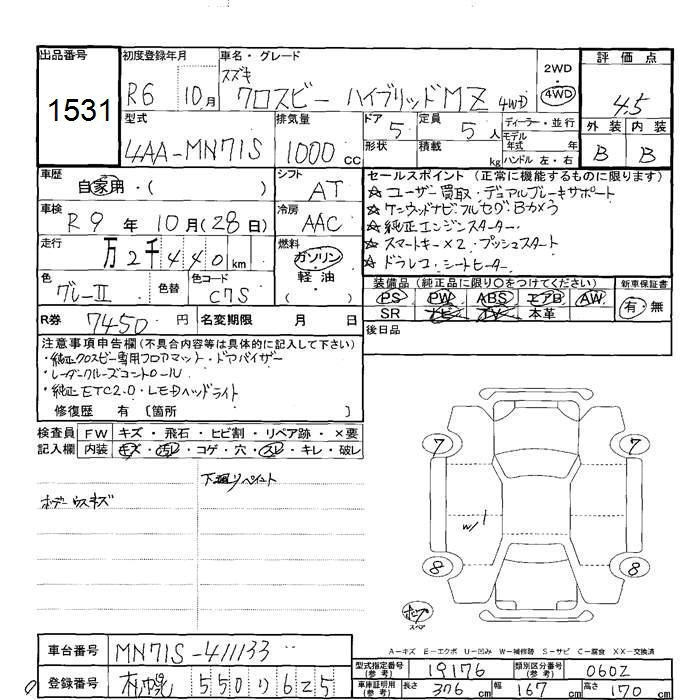 出品番号 初度登録年月 車名・グレード 2WD 評価点
1531 R6 10月 スズキ クロスビー ハイブリッドMZ 4WD 4WD 4.5
型式 排気量 ドア 定員 ディーラー・並行 外装 内装
4AA-MN71S 1000cc 5 5人 モデル年式 年 B B
形状 積載 kg ハンドル 左・右
車歴 自家用・( ) シフト AT
セールスポイント(正常に機能するものに限ります)
☆ユーザー買取・デュアルブレーキサポート
☆ケンウッドナビ フルセグ Bカメラ
☆純正エンジンスターター
☆スマートキー×2 プッシュスタート
☆ドラレコ・シートヒーター
車検 R9年10月(28日) 冷房 AAC
走行 万2千440km 燃料 ガソリン・軽油( )
色 グレーII 色替 色コード C7S
装備品(純正品に限り○をつけてください) 新車保証書
PS PW ABS エアB AW 有・無
SR ナビ TV 本革
R券 7450円 名変期限 月 日 後日品
注意事項申告欄(不具合内容等は具体的に記入して下さい)
・純正クロスビー専用フロアマット・ドアバイザー
・レーダークルーズコントロール
・純正ETC2.0・LEDヘッドライト
修復歴 有〔箇所 〕
検査員 FW キズ・飛石・ヒビ割・リペア跡・×要
記入欄 内装 キズ・汚レ・コゲ・穴・スレ・キレ・破レ
下廻りペイント
ボデーウスキズ
7 7
W/ 1
8 8
スペア
A-キズ E-エクボ U-凹み W-補修跡 S-サビ C-腐食 XX-交換済
車台番号 MN71S-411133
登録番号 札幌 550 り 625
型式指定番号(参考) 19176 類別区分番号(参考) 0602
車庫証明用(参考) 長さ 376cm 幅 167cm 高さ 170cm